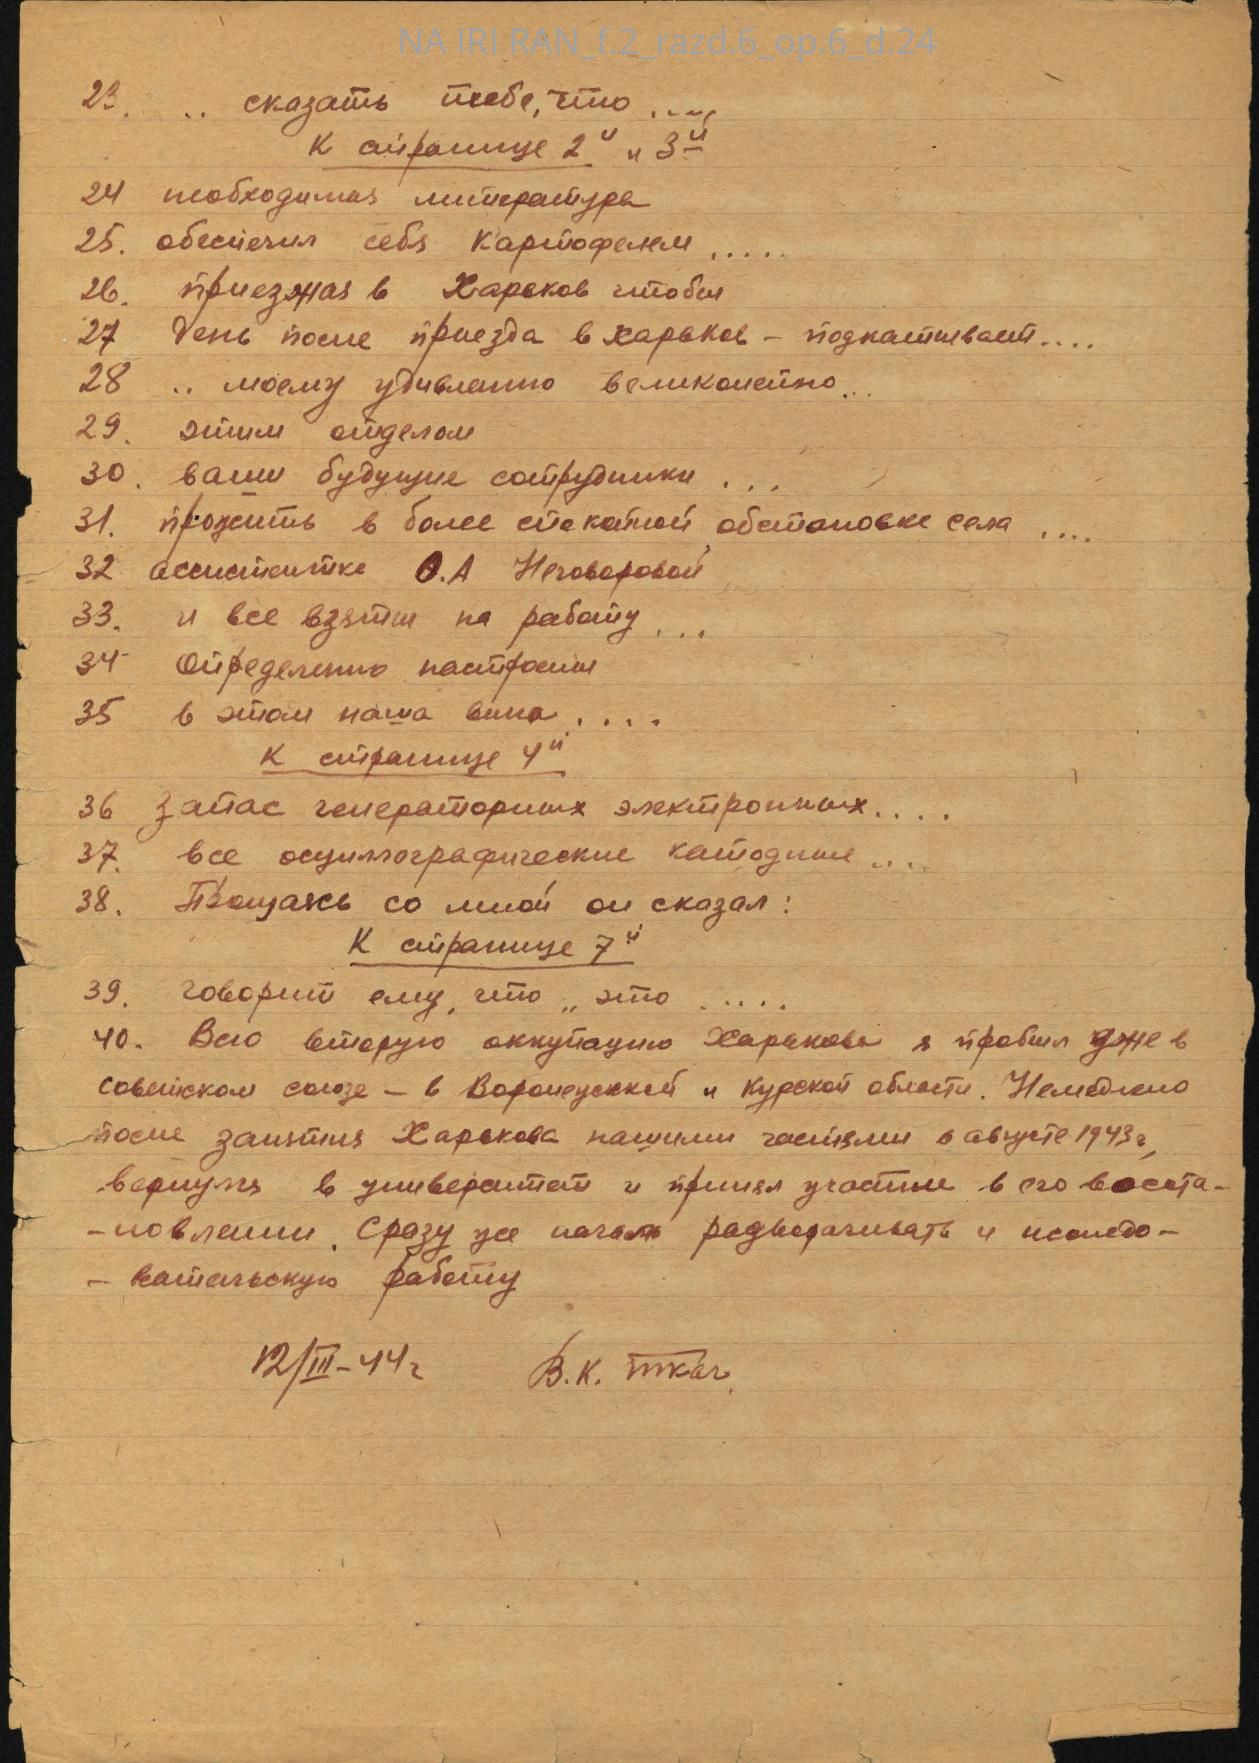 NA IRI RAN_f.2_razd.6_op.6_d.24
23. .. сказать тебе, что ....
К странице 2й и 3й
24 необходимая литература
25. обеспечил себя картофелем .....
26. приезжая в Харьков чтобы
27 День после приезда в Харьков – подкатывает....
28 .. моему удивлению великолепно...
29. этим отделом
30. ваши будущие сотрудники ...
31. прожить в более спокойной обстановке села ....
32 ассистентке О.А Неговоровой
33. и все взяты на работу ...
34 Определенно настроены
35 в этом наша вина ....
К странице 4й
36 Запас генераторных электронных....
37. все осциллографические катодные ....
38. Прощаясь со мной он сказал:
К странице 7й
39. говорит ему, что „ это .....
40. Всю вторую оккупацию Харькова я пробыл уже в
советском союзе – в Воронежской и Курской области. Немедленно
после занятия Харькова нашими частями в августе 1943г,
вернулся в университет и принял участие в его восста-
-новлении. Сразу же начали разворачивать и исследо-
- вательскую работу
12/III-44г В.К. Ткач